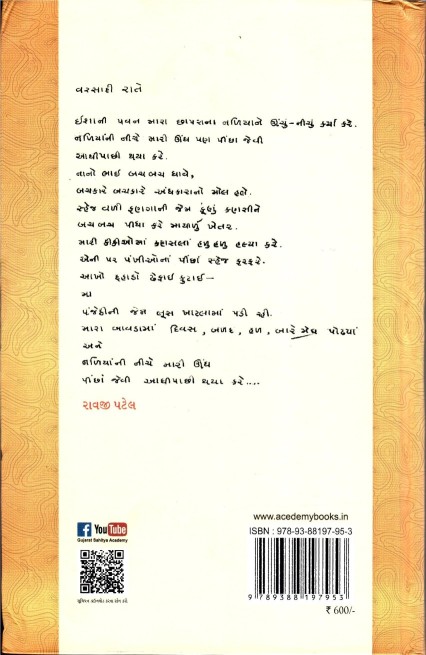 વરસાદી રાતે
ઈશાની પવન મારા છાપરાના નળિયાને ઊંચું-નીચું કર્યા કરે.
નળિયાંની નીચે મારી ઊંઘ પણ પીંછા જેવી
આઘીપાછી થયા કરે.
નાનો ભાઈ બચબચ ધાવે,
બચકારે બચકારે અંધકારનો મોલ હલે.
સ્હેજ વળી ફણગાની જેમ કૂણું કણસીને
બચબચ પીધા કરે માયાળુ ખેતર.
મારી કીકીઓમાં કણસલાં હળુહળુ હલ્યા કરે.
એની પર પંખીઓનાં પીંછાં સ્હેજ ફરફરે.
આખો દહાડો ઢેફાઈ કુટાઈ—
મા
પંજેઠીની જેમ લૂસ ખાટલામાં પડી રહી.
મારા બાવડામાં દિવસ, બળદ, હળ, બારે મેઘ પોઢ્યાં
અને
નળિયાંની નીચે મારી ઊંઘ
પીંછાં જેવી આઘીપાછી થયા કરે....
રાવજી પટેલ
www.acedemybooks.in
f YouTube
Gujarat Sahitya Academy
ISBN : 978-93-88197-95-3
9 789388 197953
₹ 600/-